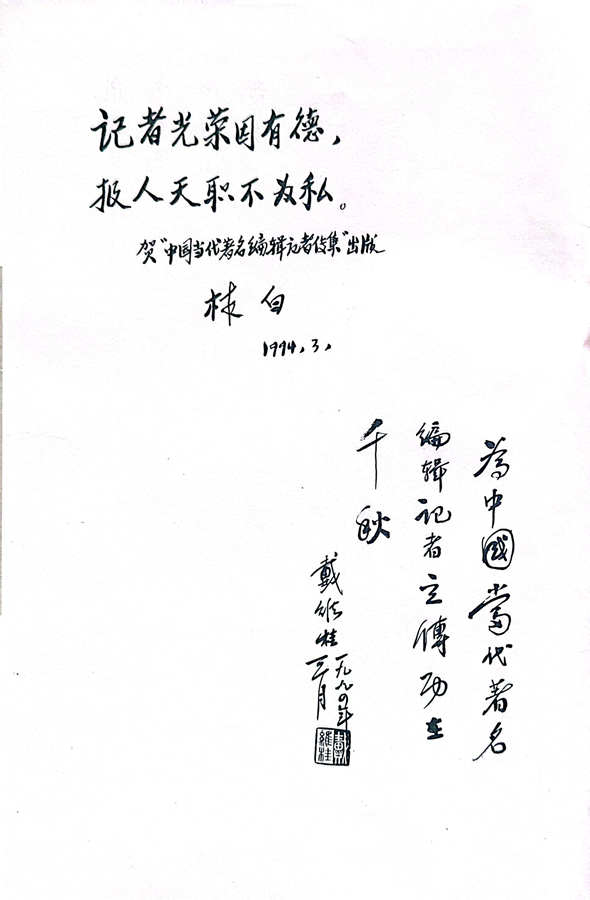 记者光荣因有德，
报人天职不为私。
贺“中国当代著名编辑记者传集”出版
林白
1994.3.
为中國當代著名
编辑记者立傳功在
千秋
戴維桂
一九九四年
三月
戴維桂